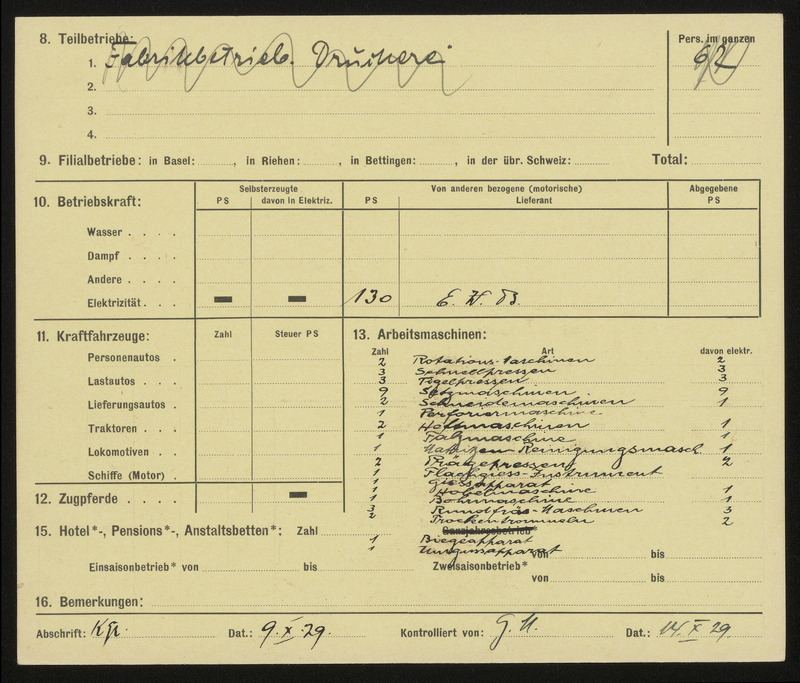 8. Teilbetriebe: Pers. im ganzen
1. Fabrikbetrieb. Druckerei 62
2.
3.
4.
9. Filialbetriebe: in Basel: , in Riehen: , in Bettingen: , in der übr. Schweiz: Total:
10. Betriebskraft: Selbsterzeugte Von anderen bezogene (motorische) Abgegebene
PS davon in Elektriz. PS Lieferant PS
Wasser . . . .
Dampf . . . .
Andere . . . .
Elektrizität . . . – – 130 E. W. B.
11. Kraftfahrzeuge: Zahl Steuer PS
Personenautos .
Lastautos . . .
Lieferungsautos .
Traktoren . . .
Lokomotiven . .
Schiffe (Motor) .
12. Zugpferde . . . . –
13. Arbeitsmaschinen:
Zahl Art davon elektr.
2 Rotations-Maschinen 2
3 Schnellpressen 3
3 Tegelpressen 3
9 Setzmaschinen 9
2 Schneidemaschinen 1
1 Perforiermaschine
2 Heftmaschinen 1
1 Falzmaschine 1
1 Matrizen-Reinigungsmasch. 1
2 Prägepressen 2
1 Flachgiess-Instrument
1 Giessapparat
1 Hobelmaschine 1
1 Bohrmaschine 1
3 Rundfräs-Maschinen 3
2 Trockentrommeln 2
Ganzjahresbetrieb*
1 Biegeapparat
1
15. Hotel*-, Pensions*-, Anstaltsbetten*: Zahl
von bis
Einsaisonbetrieb* von bis Zweisaisonbetrieb*
von bis
16. Bemerkungen:
Abschrift: Kgr. Dat.: 9.X.29. Kontrolliert von: G. U. Dat.: 14.X.29.